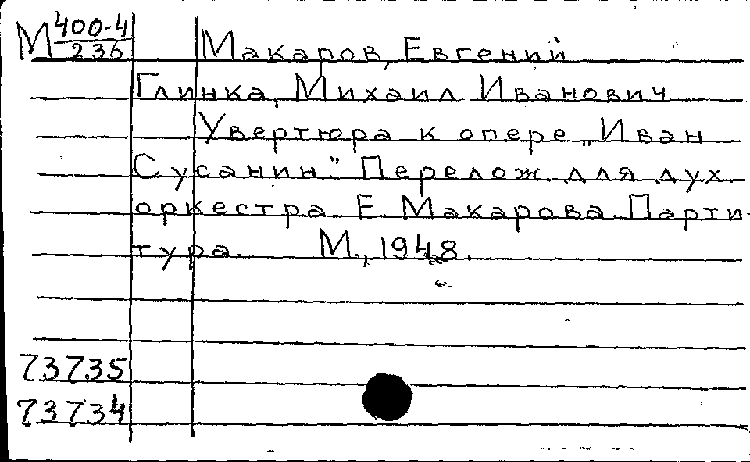 М 400-4
236
Макаров, Евгений
Глинка, Михаил Иванович
Увертюра к опере „Иван
Сусанин." Перелож. для дух.
оркестра Е. Макарова. Парти-
тура. М., 1948.
73735
73734